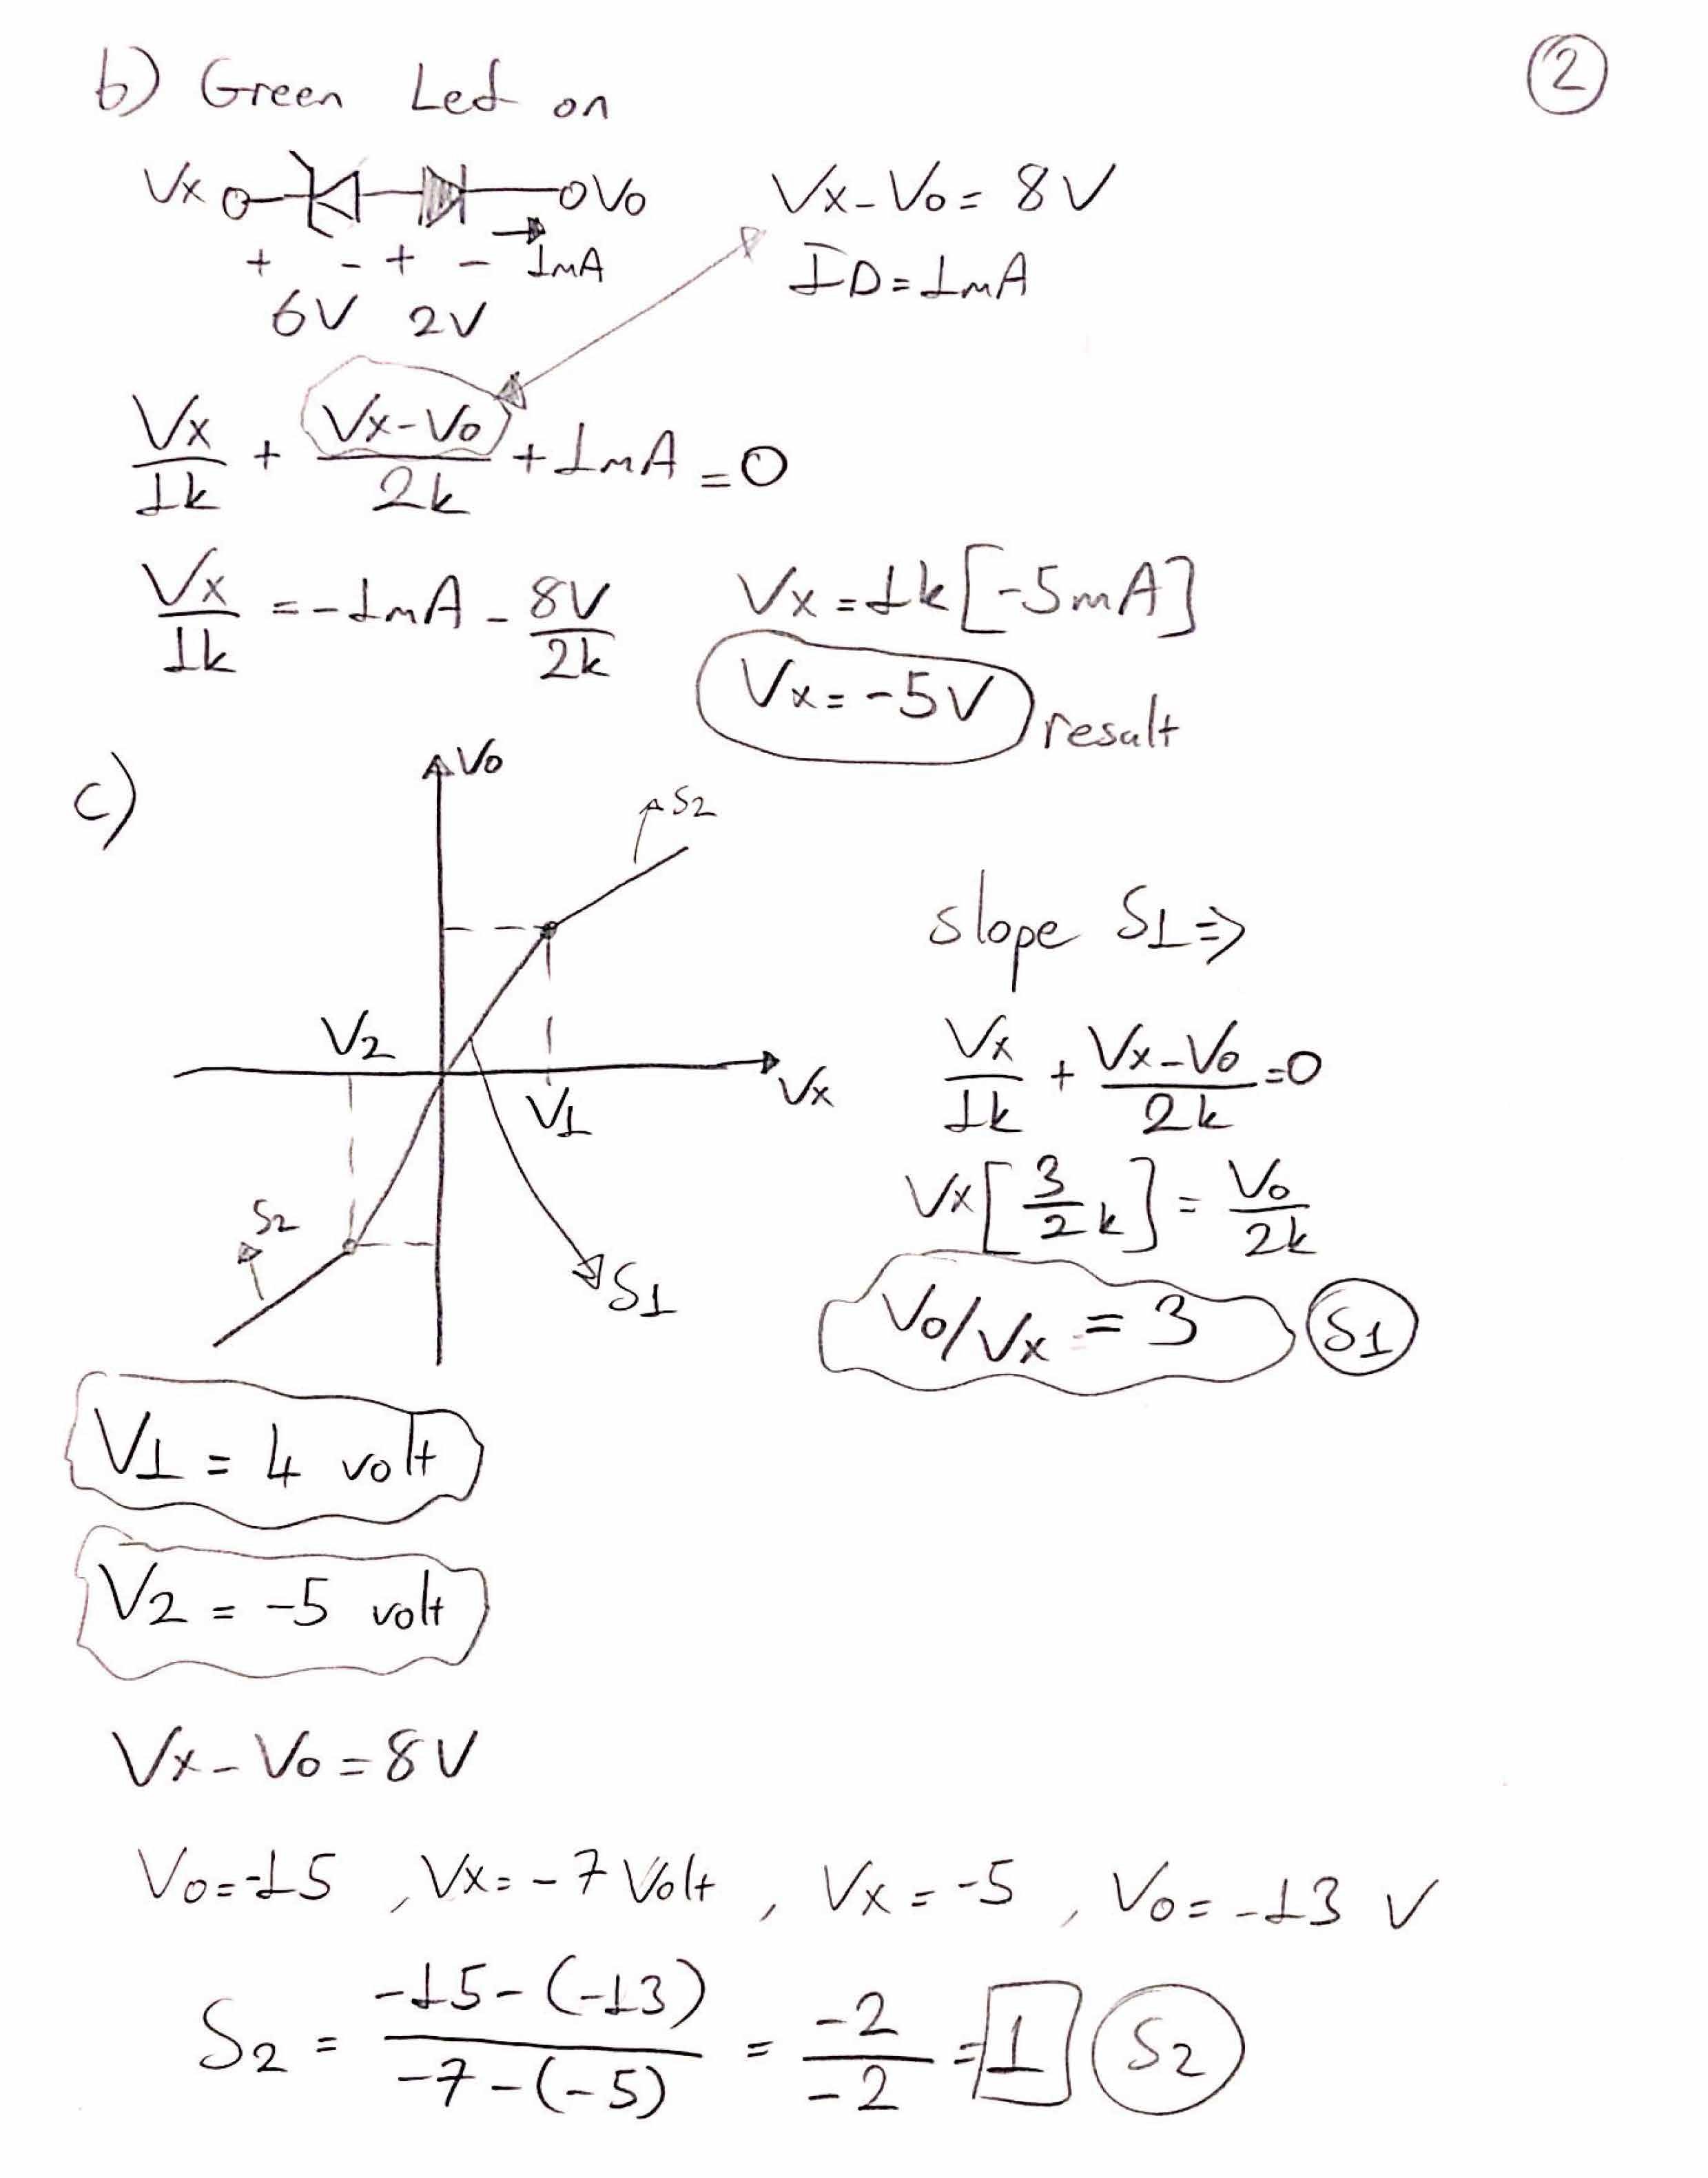 b) Green Led on
2
Vx Vo
+ - + - 1mA
6V 2V
Vx-Vo= 8V
ID=1mA
Vx/1k + Vx-Vo/2k +1mA =0
Vx/1k =-1mA - 8V/2k
Vx=1k[-5mA]
Vx=-5V result
c)
Vo
S2
V2
V1
Vx
S2
S1
slope S1⇒
Vx/1k + Vx-Vo/2k =0
Vx[3/2k] = Vo/2k
Vo/Vx = 3 S1
V1 = 4 volt
V2 = -5 volt
Vx-Vo=8V
Vo=-15 , Vx=-7 Volt , Vx=-5 , Vo=-13 V
S2 = -15-(-13)/-7-(-5) = -2/-2 =1 S2